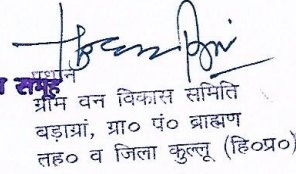 समूह
प्रधान
ग्राम वन विकास समिति
बड़ाग्रां, ग्रा० पं० ब्राह्मण
तह० व जिला कुल्लू (हि०प्र०)